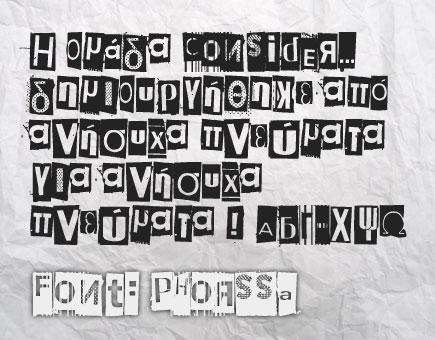 Η ομάδα CONSIDER...
δημιουργήθηκε από
ανήσυχα πνεύματα
για ανήσυχα
πνεύματα ! ΑΒΗ...ΧΨΩ
Font: PHOASSa